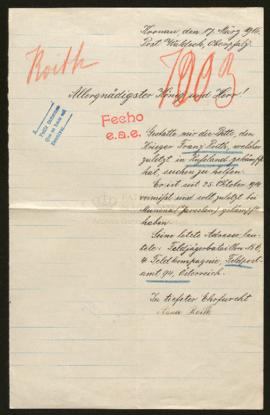 Kronau, den 17. März 1916.
Post Waldsch, Oberpfalz.
Roith
7223
Allergnädigster König und Herr!
Fecho
e.a.e.
Gestatte mir die Bitte, den
Krieger Franz Roith, welcher
zuletzt in Rußland gekämpft
hat, suchen zu helfen.
Er ist seit 25. Oktober 1914
vermißt und soll zuletzt bei
Jaroslau gekämpft
haben.
Seine letzte Adresse lau-
tete: Feldjägerbatallion No 6,
4. Feldkompagnie, Feldpost-
amt 94, Österreich.
In tiefster Ehrfurcht
Roith